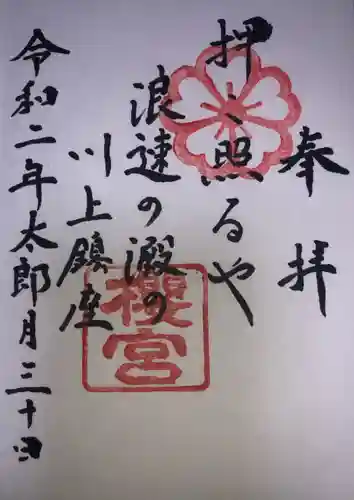 奉拝
押し照るや
浪速の澱の
川上鎮座
櫻宮
令和二年太郎月三十日